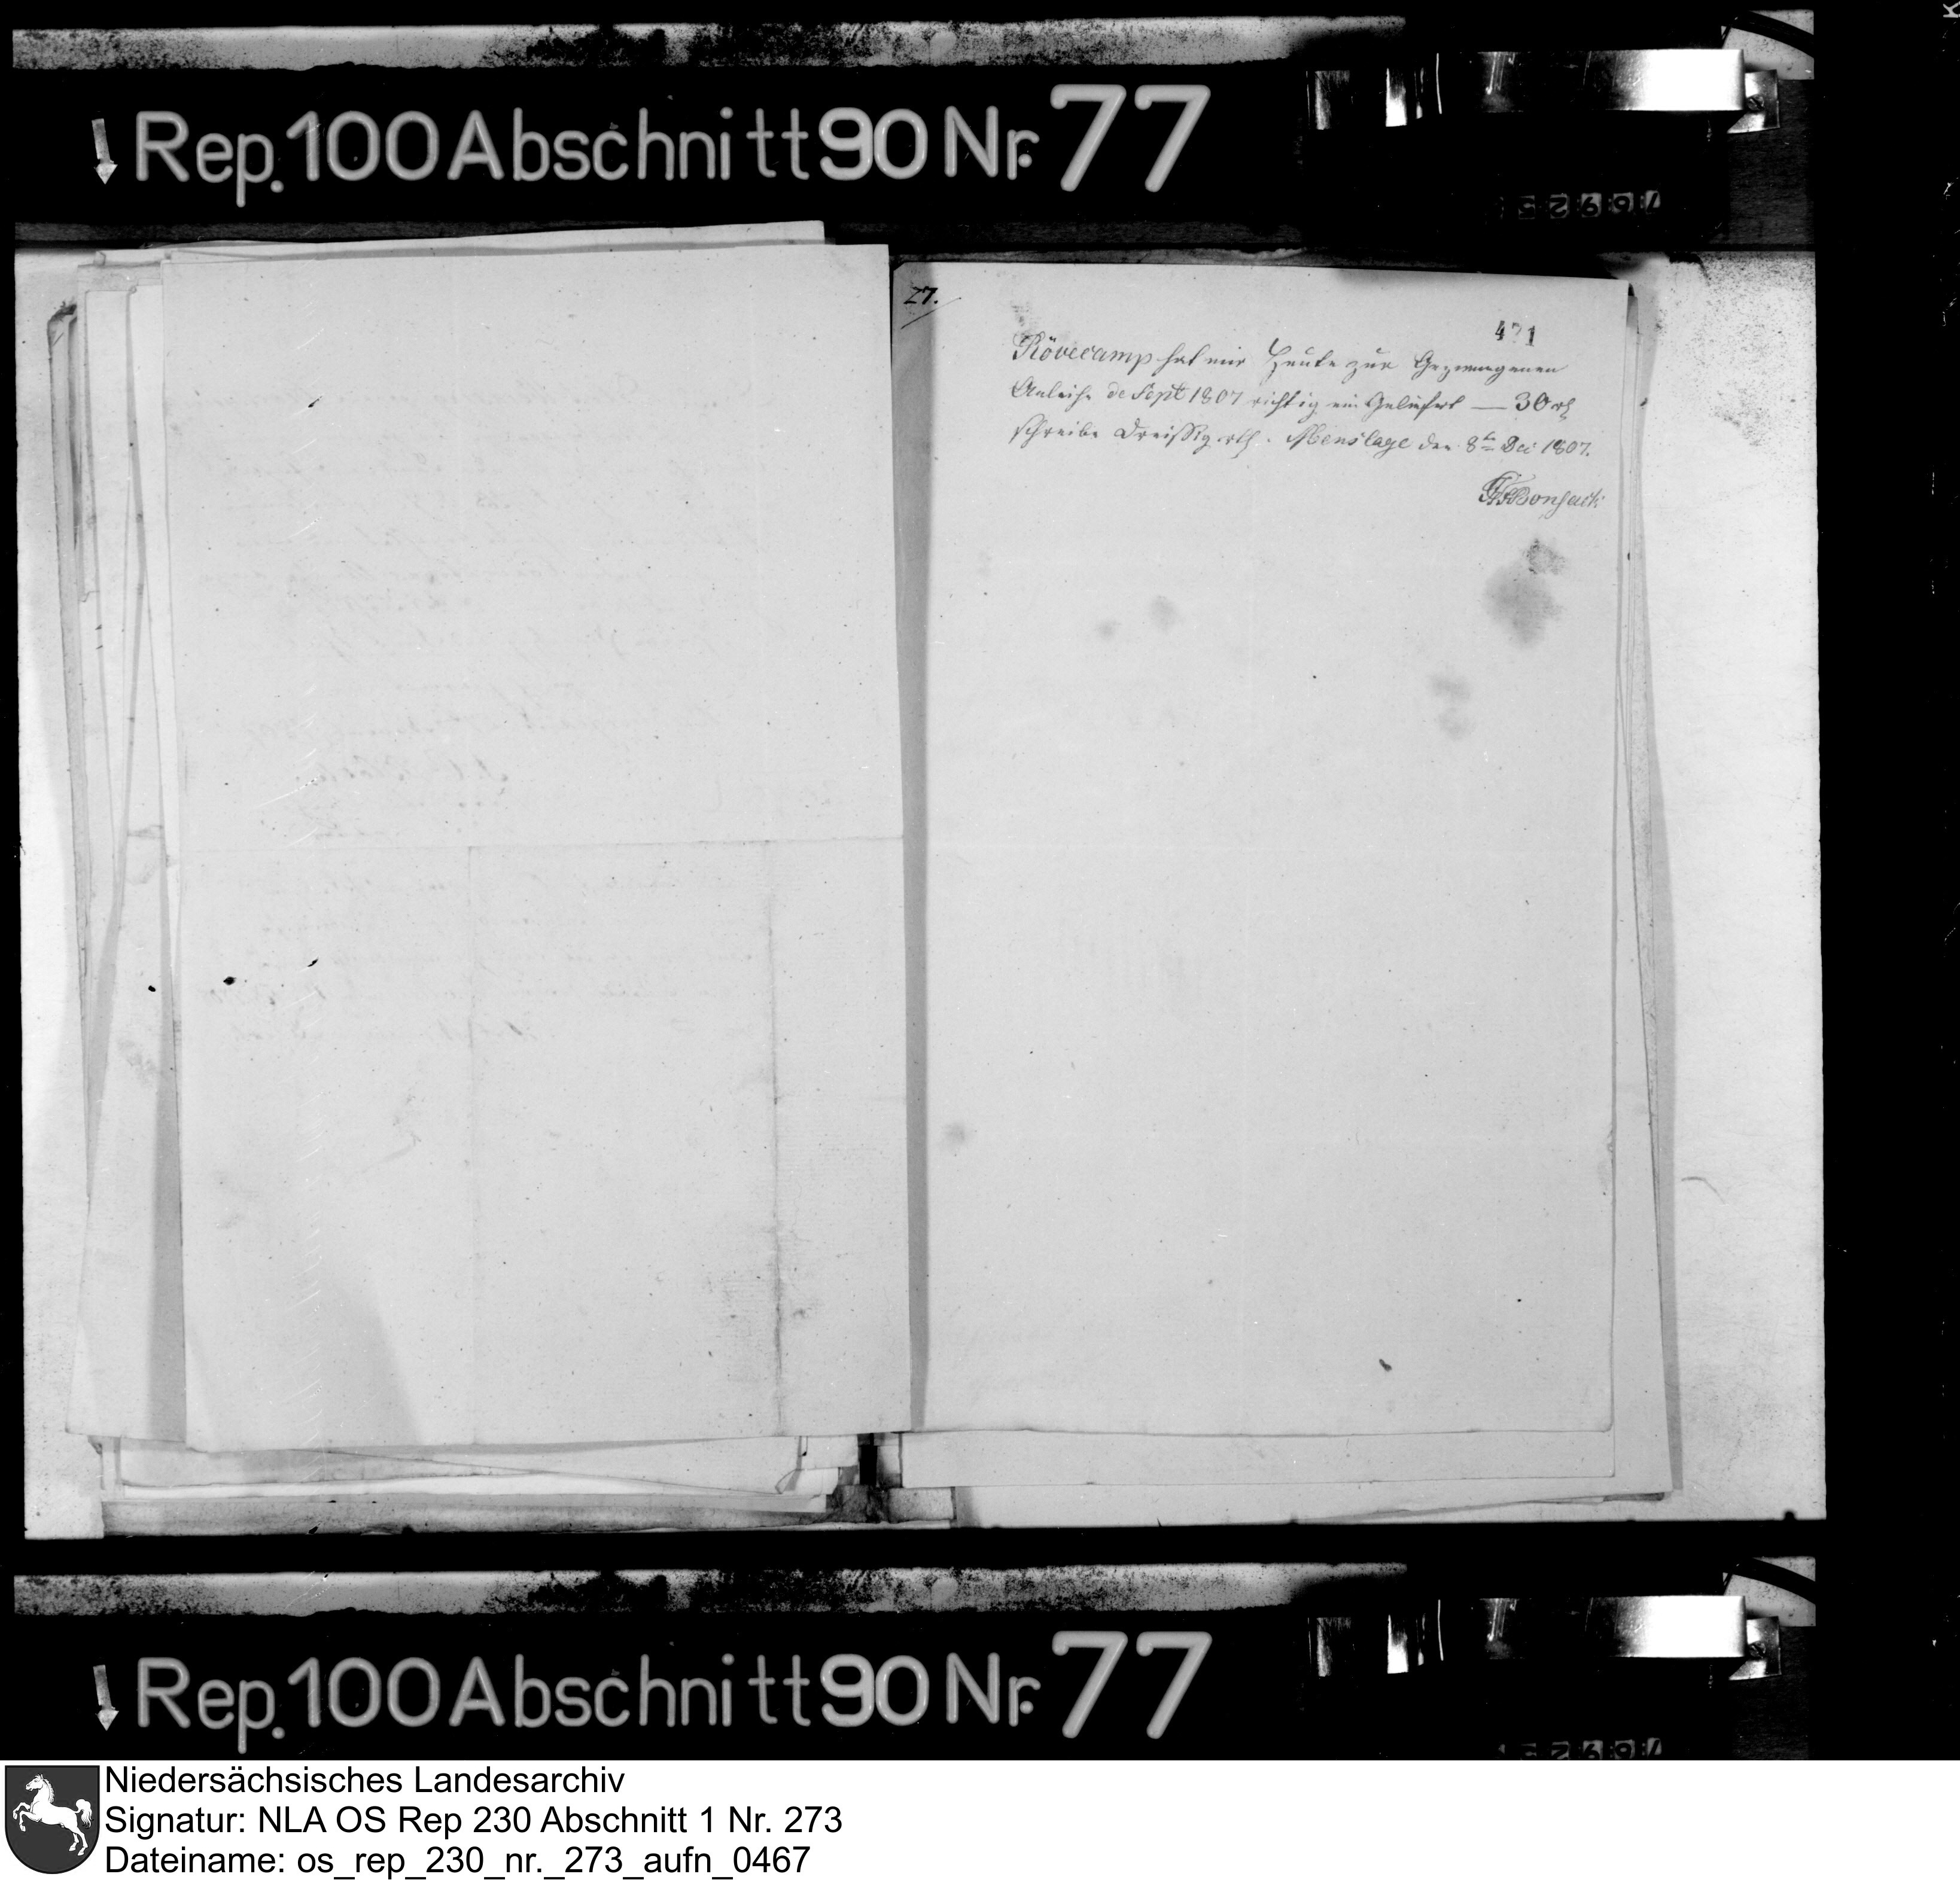 Rep. 100 Abschnitt 90 Nr. 77
27.
471
Rövecamp hat mir Heute zur Gezwungenen
Anleihe de Sept 1807 richtig ein Geliefert — 30 rth
schreibe Dreissig rth. Menslage den 8ten Dec 1807.
Bonsack
Rep. 100 Abschnitt 90 Nr. 77
Niedersächsisches Landesarchiv
Signatur: NLA OS Rep 230 Abschnitt 1 Nr. 273
Dateiname: os_rep_230_nr._273_aufn_0467